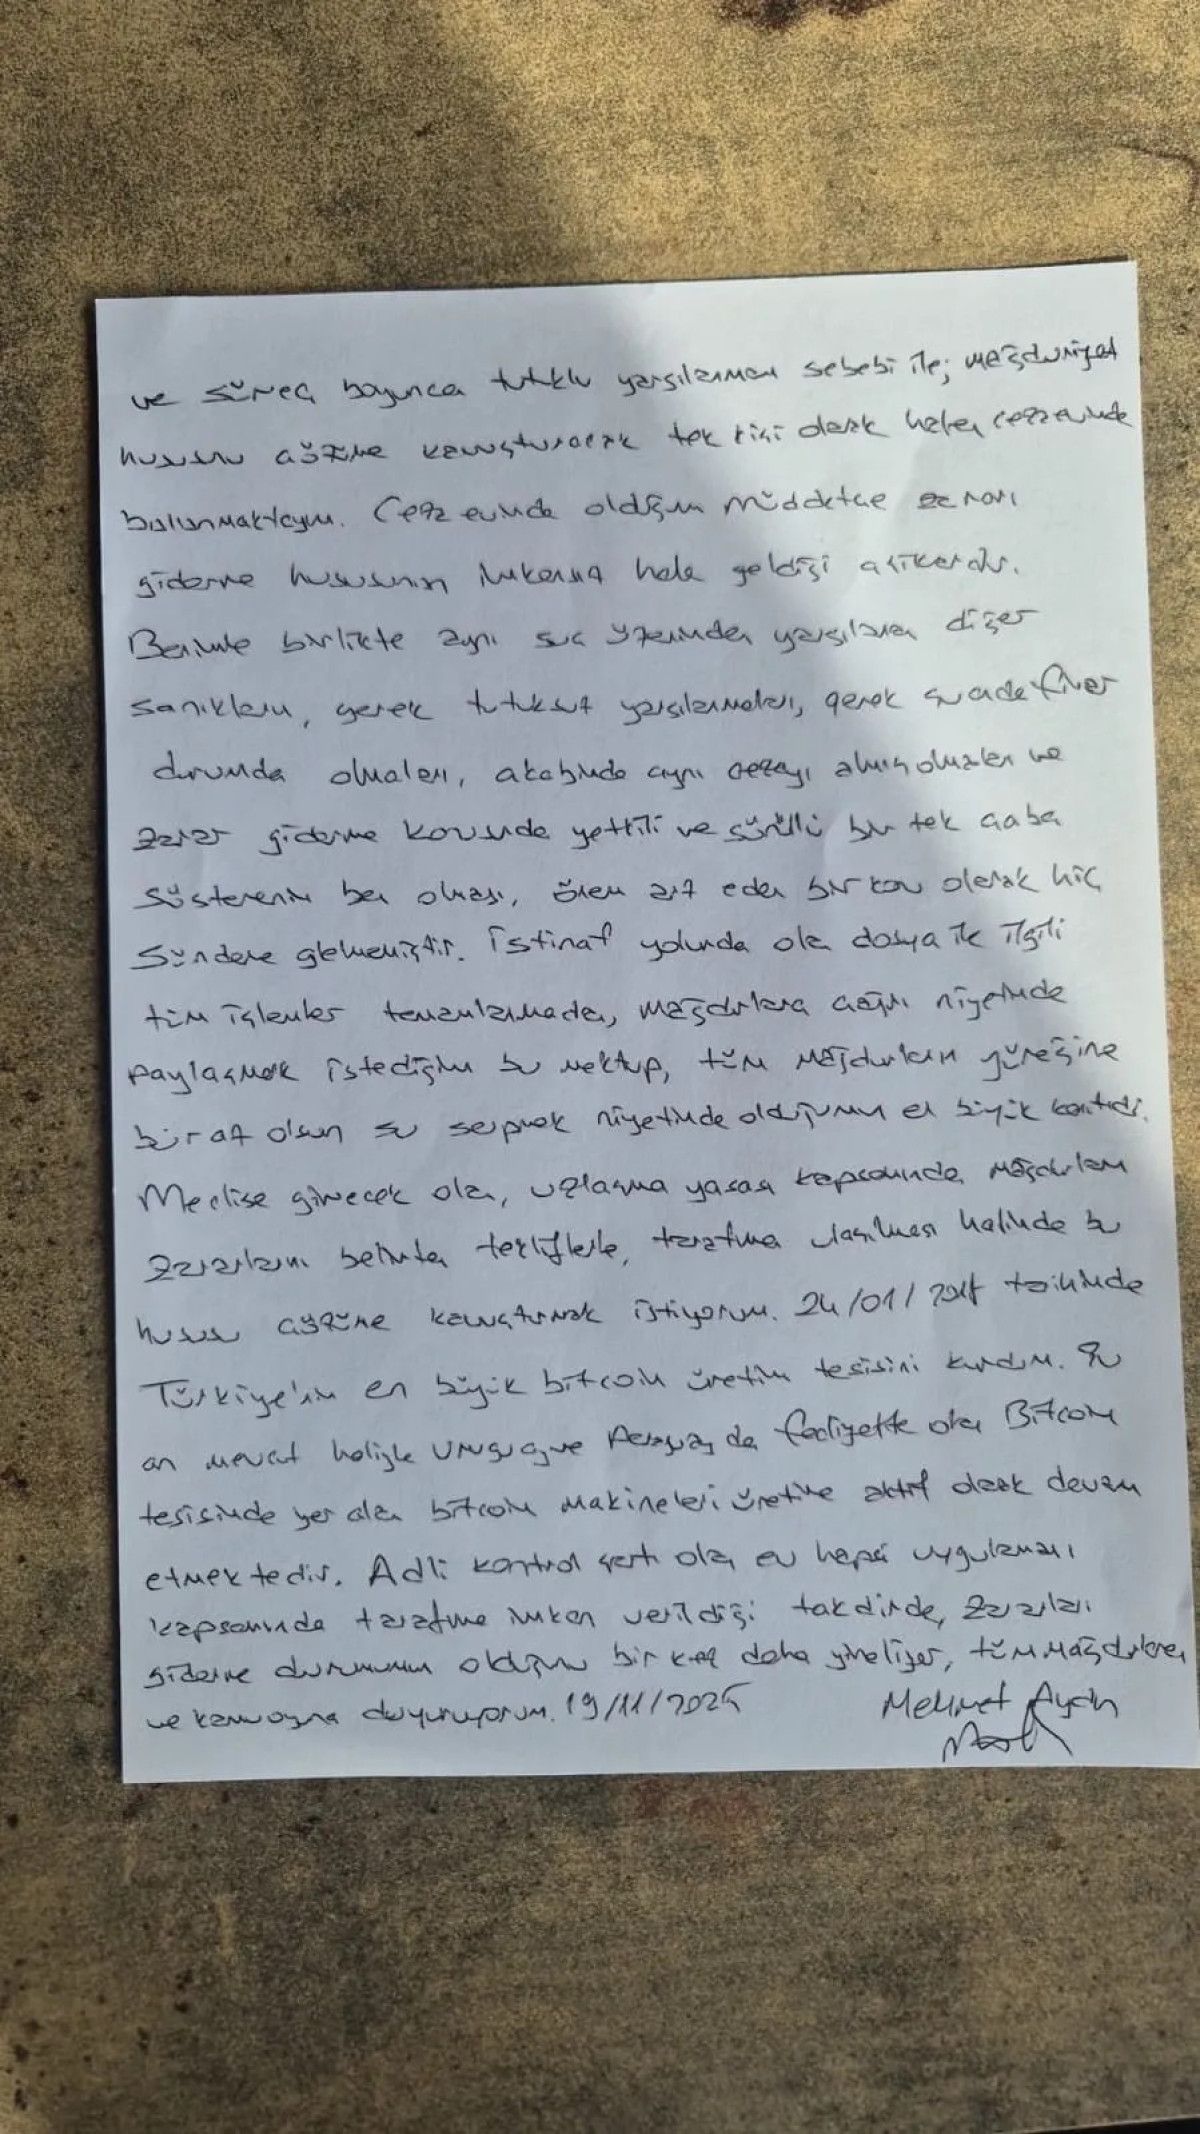 ve süreç boyunca tutuklu yargılanmam sebebi ile; mağduriyet
hususunu çözüme kavuşturacak tek kişi olarak halen cezaevinde
bulunmaktayım. Cezaevinde olduğum müddetçe zararı
giderme hususunun imkansız hale geldiği aşikardır.
Benimle birlikte aynı suç üzerinden yargılanan diğer
sanıkların, gerek tutuksuz yargılanmaları, gerek firar
durumda olmaları, akabinde aynı cezayı almış olmaları ve
zarar giderme konusunda yetkili ve bir tek çaba
gösterenin ben olması, önem arz eden bir konu olarak hiç
gündeme gelmemiştir. İstinaf yolunda olan dosya ile ilgili
tüm işlemler tamamlanmadan, mağdurlara çağrı niyetinde
paylaşmak istediğim bu mektup, tüm mağdurların yüreğine
biraz olsun su serpmek niyetinde olduğumun en büyük kanıtıdır.
Meclise girecek olan, uzlaşma yasası kapsamında mağdurların
zararlarını belirten tekliflerle, tarafıma ulaşılması halinde bu
hususu çözüme kavuşturmak istiyorum. 24/01/2018 tarihinde
Türkiye'nin en büyük bitcoin üretim tesisini kurdum. Şu
an mevcut haliyle Uruguay ve Paraguay da faaliyette olan Bitcoin
tesisinde yer alan bitcoin makineleri üretime aktif olarak devam
etmektedir. Adli kontrol şartı olan ev hapsi uygulaması
kapsamında tarafıma imkan verildiği takdirde, zararları
giderme durumumun olduğunu bir kez daha yineliyor, tüm mağdurlara
ve kamuoyuna duyuruyorum. 19/11/2025 Mehmet Aydın